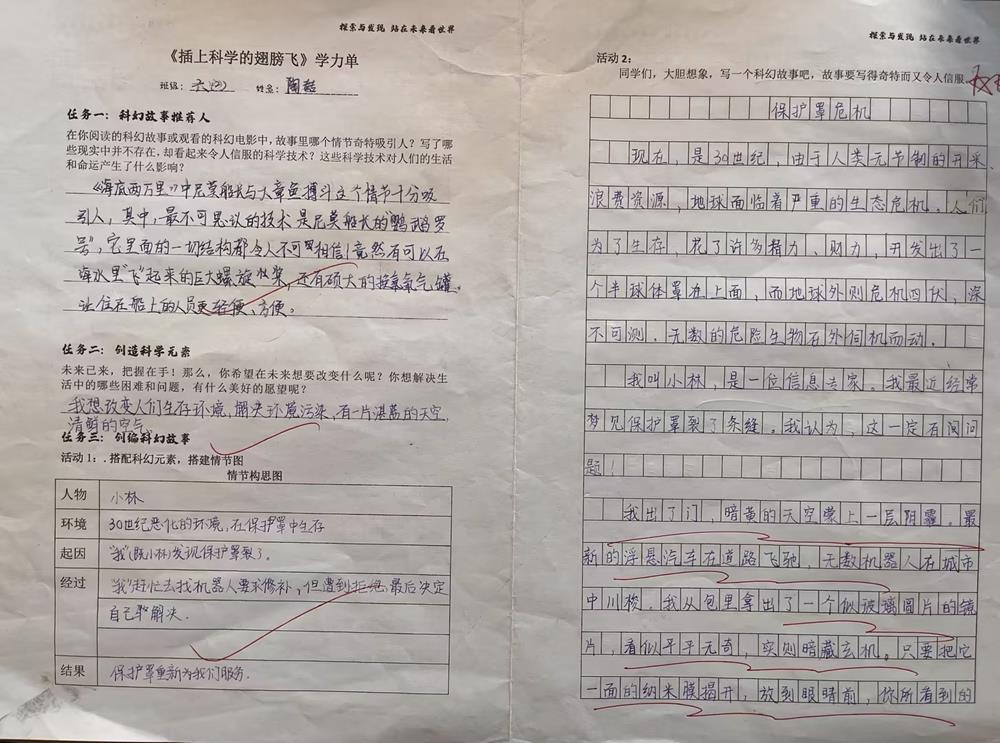 探索与发现 站在未来看世界
《插上科学的翅膀飞》学力单
班级: 姓名: 陶喆
任务一：科幻故事推荐人
在你阅读的科幻故事或观看的科幻电影中，故事里哪个情节奇特吸引人？写了哪
些现实中并不存在，却看起来令人信服的科学技术？这些科学技术对人们的生活
和命运产生了什么影响？
《海底两万里》中尼莫船长与大章鱼搏斗这个情节十分吸
引人，其中，最不可思议的技术是尼莫船长的“鹦鹉罗
号”，它里面的一切结构都令人不可相信！竟然有可以在
海水里“飞”起来的巨大螺旋桨，还有硕大的氧气罐。
让住在船上的人员更轻便、方便。
任务二：创造科学元素
未来已来，把握在手！那么，你希望在未来想要改变什么呢？你想解决生
活中的哪些困难和问题，有什么美好的愿望呢？
我想改变人们生存环境，解决环境污染，有一片湛蓝的天空
清鲜的空气。
任务三：创编科幻故事
活动1：.搭配科幻元素，搭建情节图
情节构思图
人物 小林
环境 30世纪恶化的环境，在保护罩中生存
起因 “我”(既小林)发现保护罩裂了。
经过 “我”赶忙去找机器人要求修补，但遭到拒绝，最后决定
自己解决．
结果 保护罩重新为我们服务．
探索与发现 站在未来看世界
活动2：
同学们，大胆想象，写一个科幻故事吧，故事要写得奇特而又令人信服。
保护罩危机
现在，是30世纪，由于人类无节制的开采、
浪费资源，地球面临着严重的生态危机．人们
为了生存，花了许多精力、财力，开发出了一
个半球体罩在上面，而地球外则危机四伏，深
不可测．无数的危险生物在外伺机而动．
我叫小林，是一位信息专家。我最近经常
梦见保护罩裂了条缝。我认为，这一定有问
题！
我出了门，暗黄的天空蒙上一层阴霾。最
新的浮悬汽车在道路飞驰，无数机器人在城市
中川梭．我从包里拿出了一个似玻璃圆片的镜
片，看似平平无奇，实则暗藏玄机。只要把它
一面的纳米膜揭开，放到眼睛前，你所看到的